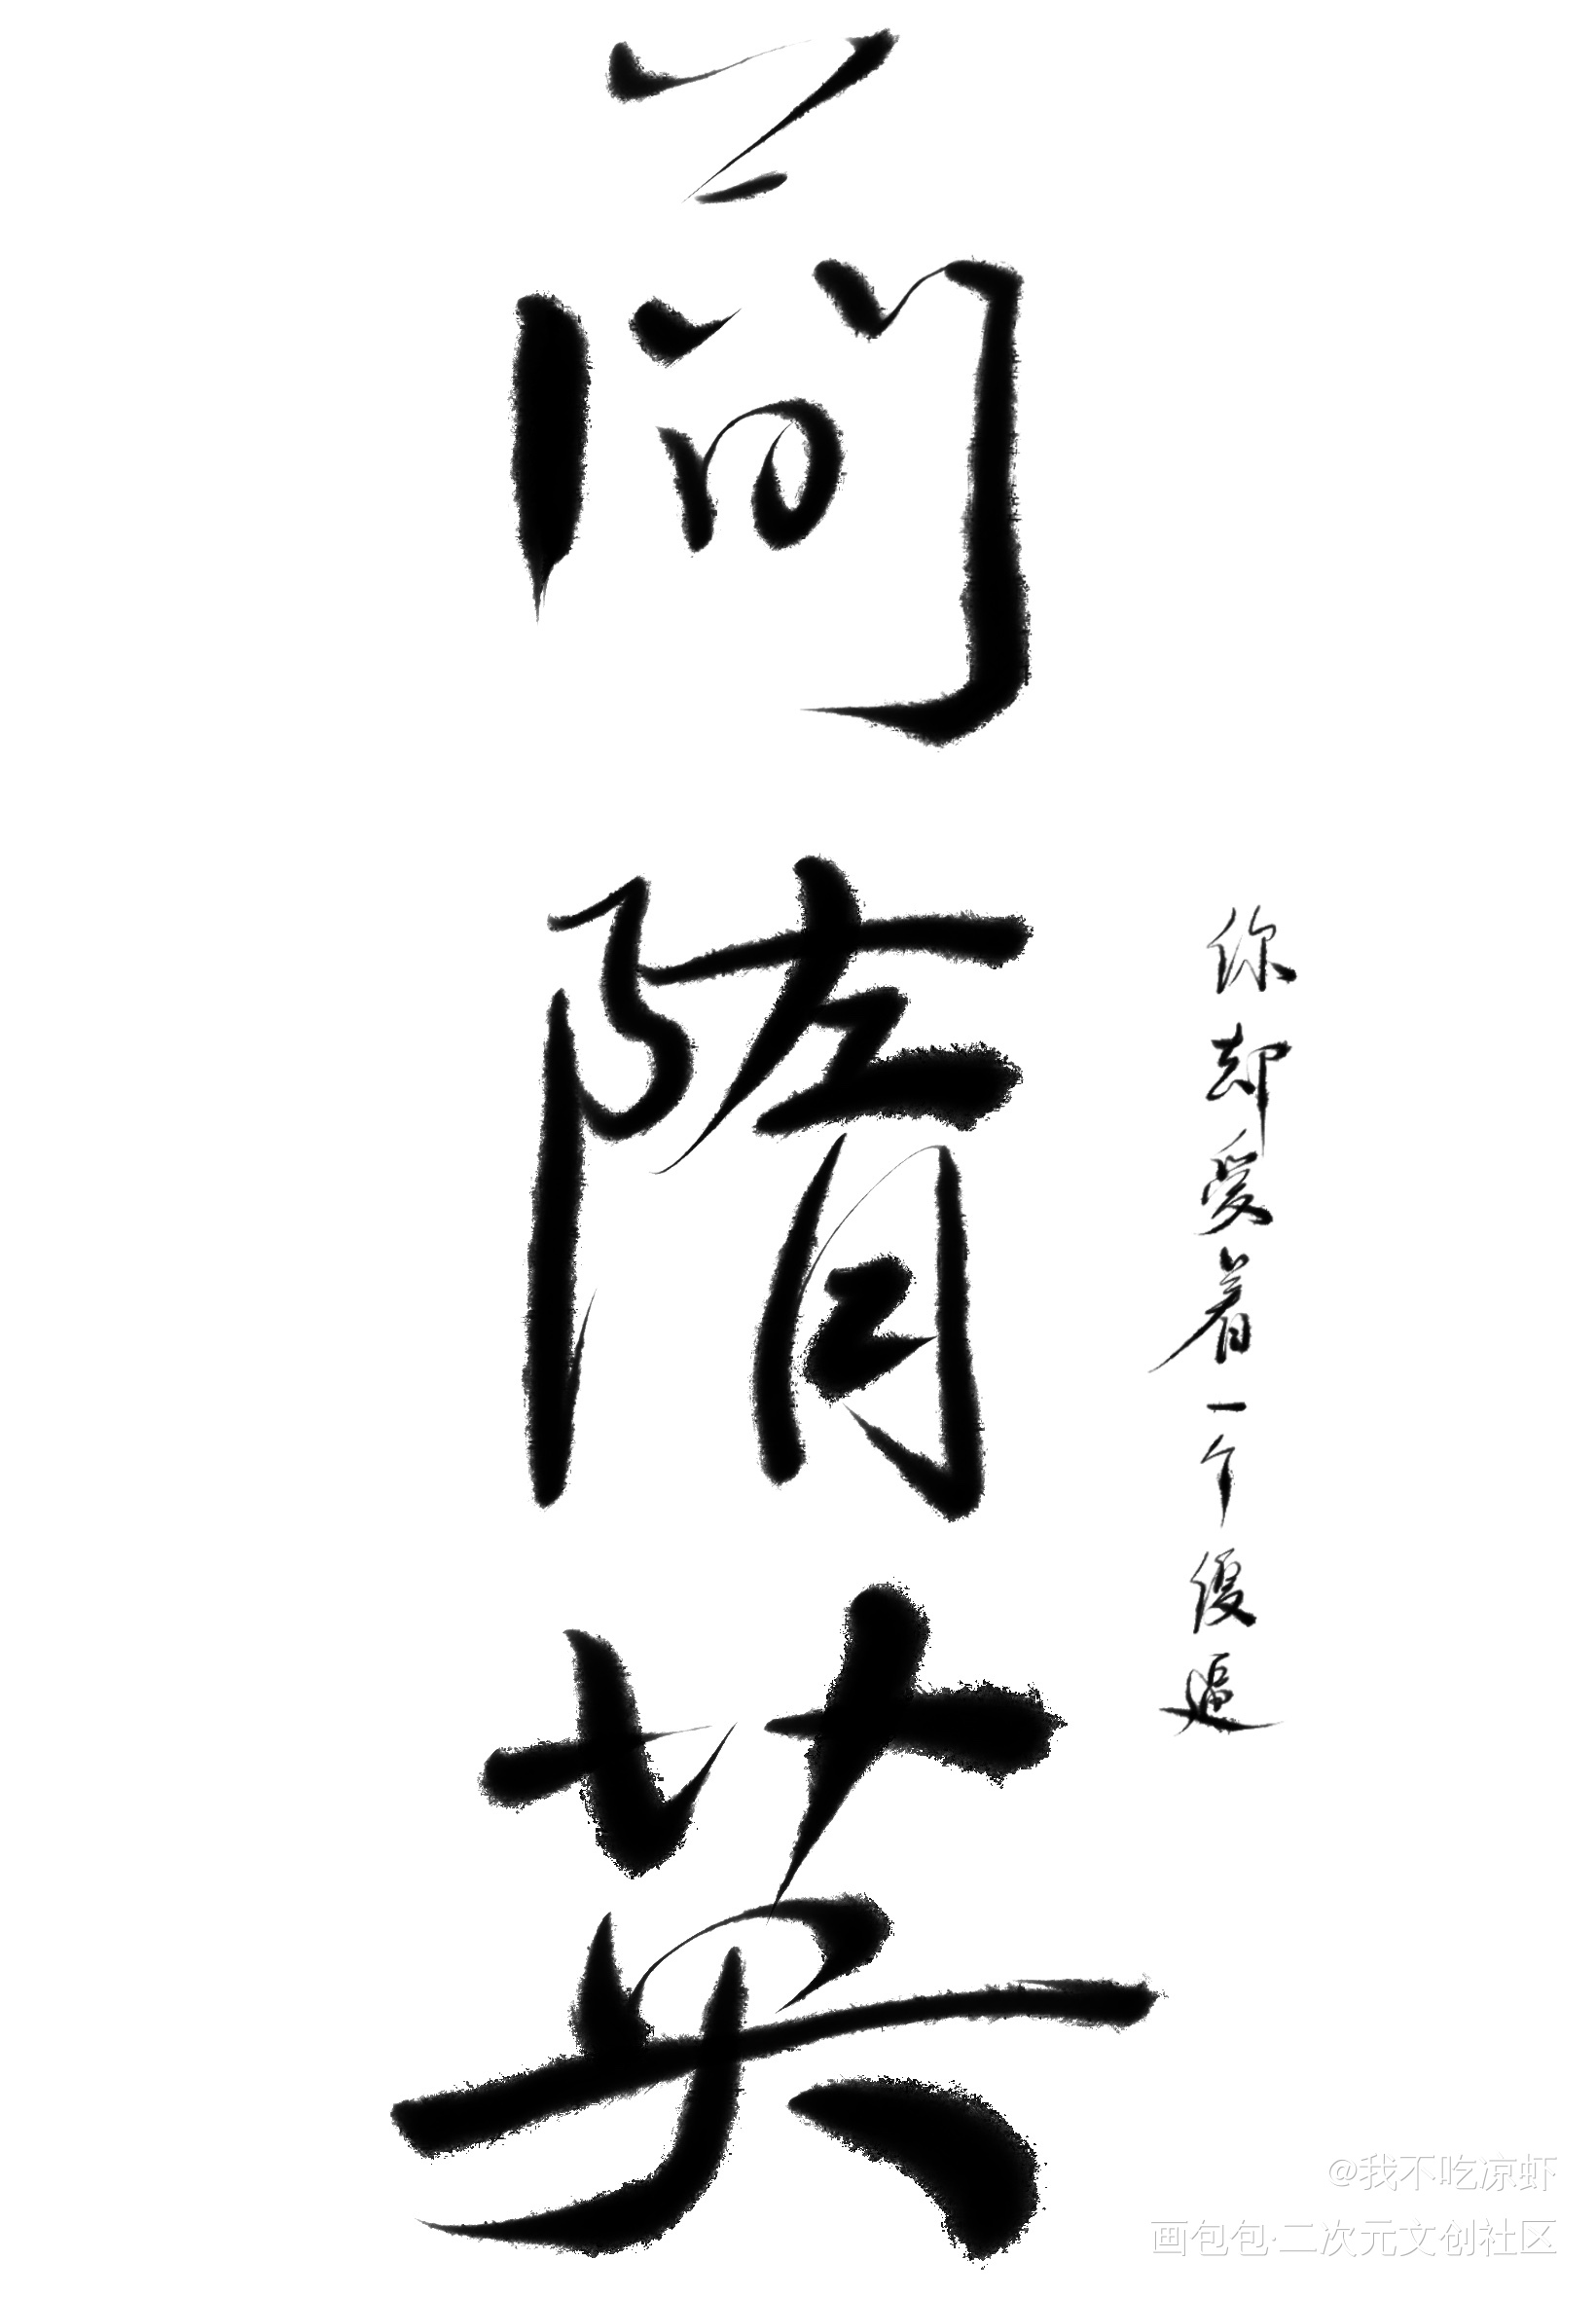 你却爱着一个傻逼
简隋英
@我不吃凉虾
画包包·二次元文创社区